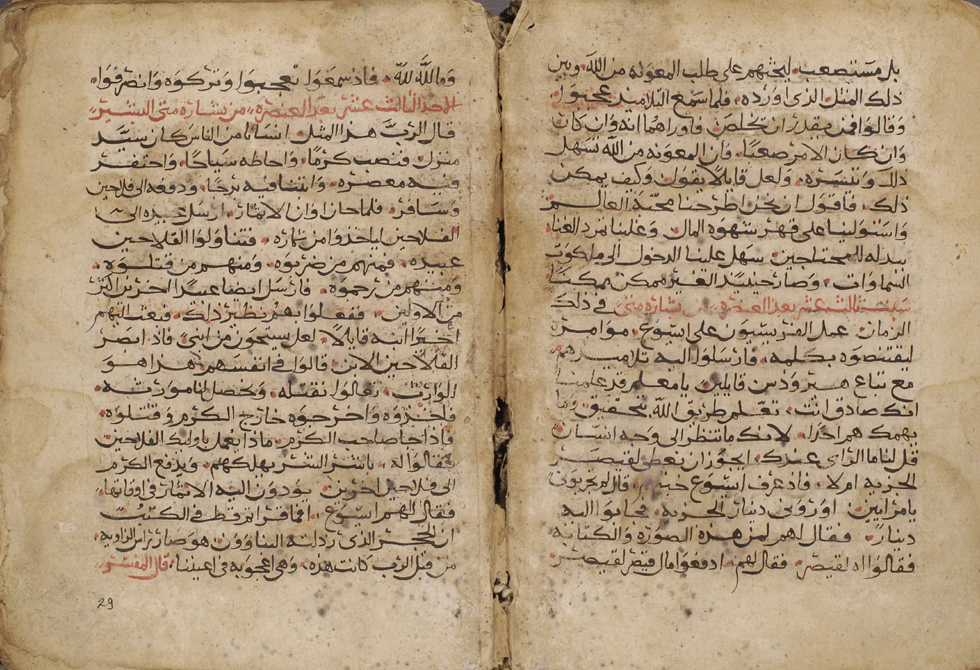 بل مستصعب. ليحثهم على طلب المعونه من الله. وبين
ذلك المثل الذي اورده. فلما سمع التلاميذ عجبوا.
وقالوا فمن يقدر ان يخلص. فاوراهما انه وان كان
وان كان الامر صعبًا. فان المعونه من الله تسهل
ذلك وتيسره. ولعل قايلًا يقول وكيف يمكن
ذلك. فاقول ان نحن اطرحنا محبة العالم
واستولينا على قهر شهوه المال. وعلينا مرد الغنا.
ببدله للمحتاجين. سهل علينا الدخول الى ملكوت
السماوات. وصار حينيذ الغير ممكن ممكنًا
بعد العنصره. من بشاره متى. في ذلك
الزمان عمل الفريسيون على ايسوع. موامره
ليقتنصوه بكلمه. فارسلوا اليه تلاميذهم
مع تباع هيرودس قايلين. يا معلم قد علمنا
انك صادق انت. تعلم طريق الله بتحقيق. وما
يهمك هم احد. لانك ما تنظر الى وجه انسان
قل لنا ما الراي عندك. ايجوز ان نعطي لقيصر
الجزيه ام لا. فاذ عرف ايسوع خبثهم. قال لم تجربوني
يا مرايين. اوروني دينار الجزيه. فجابوا اليه
دينار. فقال لهم لمن هذه الصوره والكتابه
فقالوا له لقيصر. فقال لهم. ادفعوا مال قيصر لقيصر.
وما لله لله. فاذ سمعوا تعجبوا وتركوه وانصرفوا.
الاحد الثالث عشر بعد العنصره. من بشاره متى البشير
قال الرب هذا المثل. انسانا من الناس كان سيد
منزل فنصب كرمًا. واحاطه سياجًا. واحتفر
فيه معصره. وابتنا فيه برجًا. ودفعه الى فلاحين
وسافر. فلما حان اوان الاثمار. ارسل عبيده الى
الفلاحين لياخذوا من ثماره. فتناولوا الفلاحين
عبيده. فمنهم من ضربوه. ومنهم من قتلوه.
ومنهم من رجموه. فارسل ايضا عبيدًا اخرين اكثر
من الاولين. ففعلوا بهم نظير ذلك. فبعث اليهم
اخيرًا ابنه قايلًا. لعل يستحون من ابني. فاذ ابصر
الفلاحين الابن. قالوا في انفسهم. هذا هو
الوارث. تعالوا نقتله. ونحصل لنا مورثه.
فاخذوه واخرجوه خارج الكرم وقتلوه.
فاذا جا صاحب الكرم. ماذا يعمل باوليك الفلاحين
فقالوا له. باشر الشر يهلكهم. ويدفع الكرم
الى فلاحين اخرين. يودون اليه الاثمار في اوقاتها.
فقال لهم ايسوع. اما قراتم قط في الكتب
ان الحجر الذي رذلته البناوون. هو صار راس الزاويه
من قبل الرب كانت هذه. وهي اعجوبه في اعيننا. قال المفسر
29